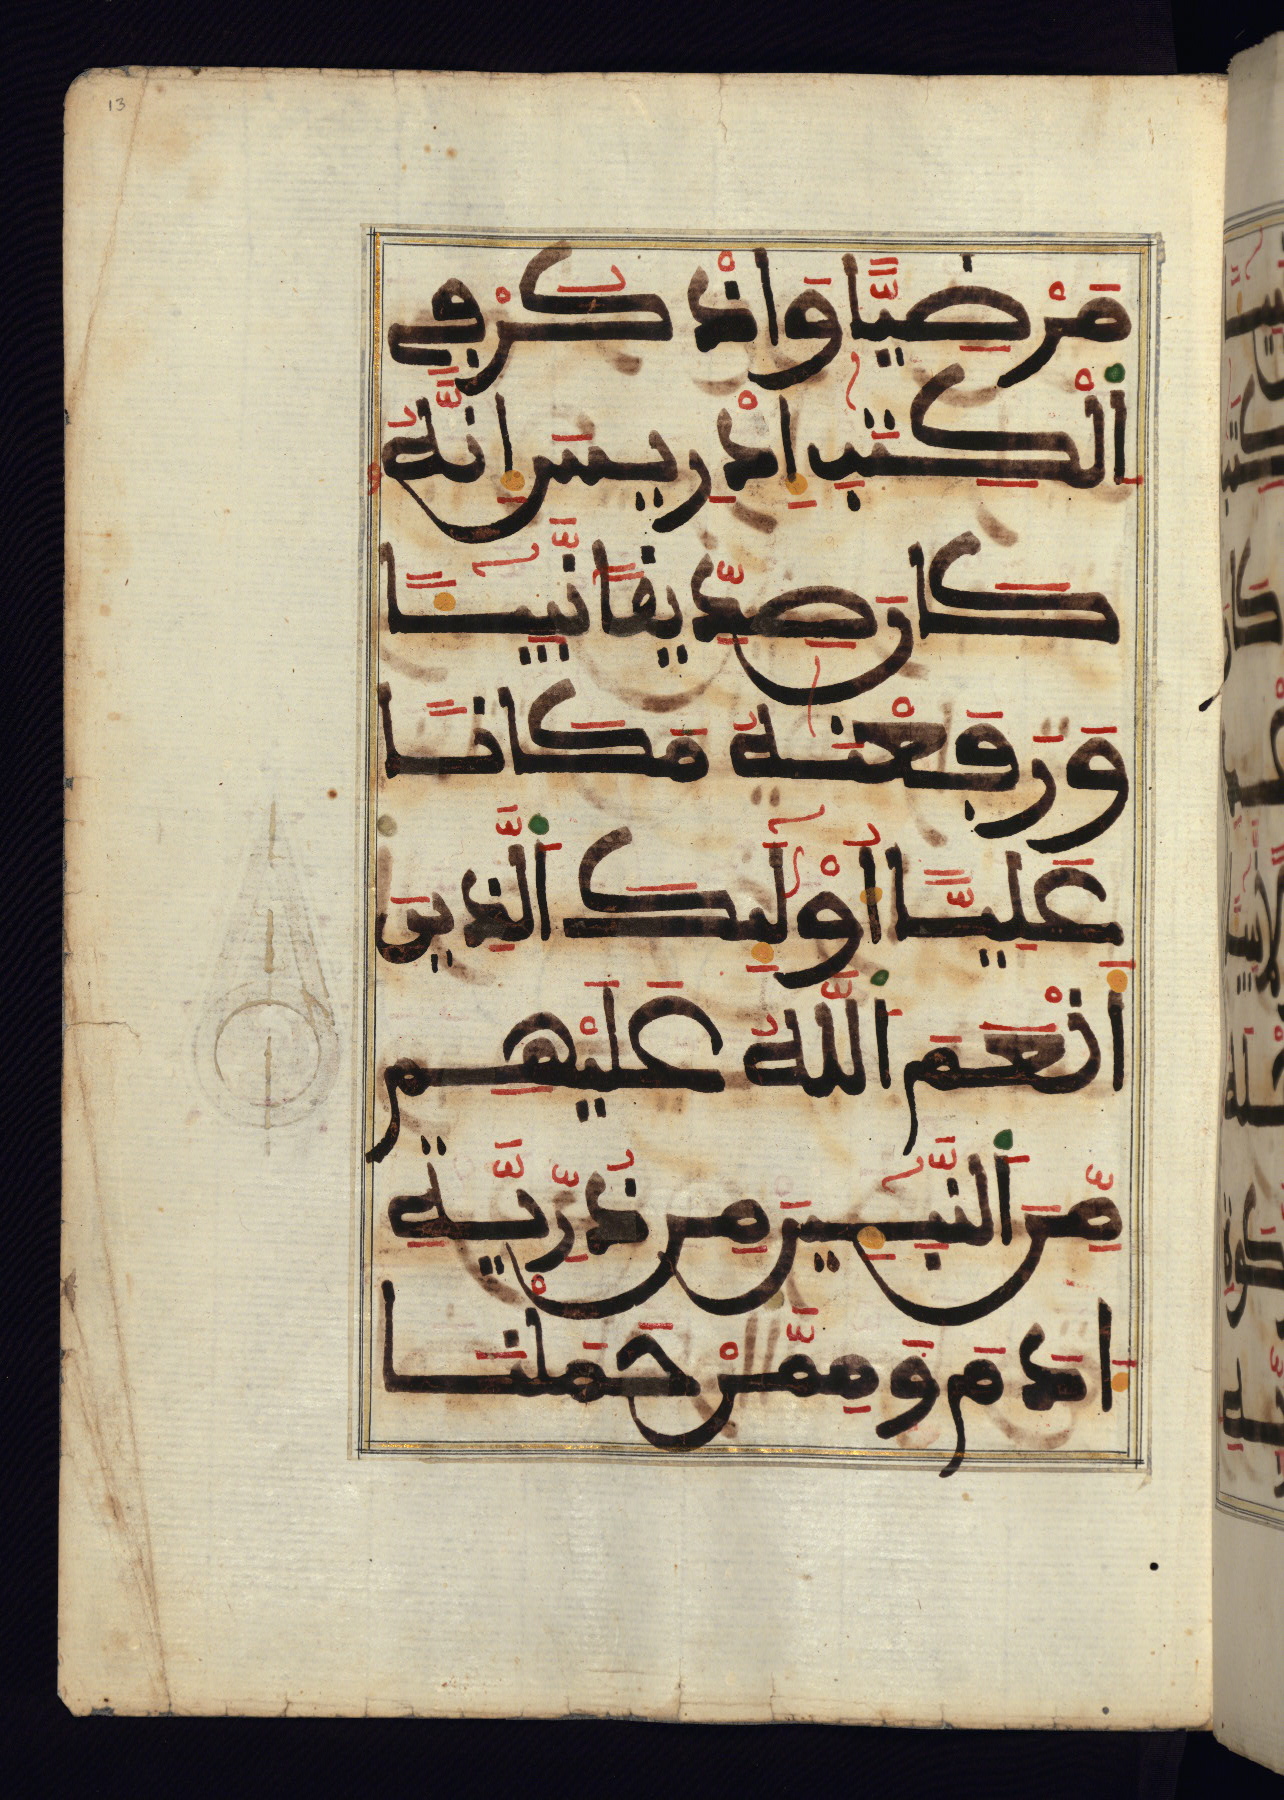 13
مَرْضِيًّا وَاذْكُرْ فِي
اَلْكِتَٰبِ إِدْرِيسَ إِنَّهُۥ
كَانَ صِدِّيقًا نَّبِيـًٔا
وَرَفَعْنَٰهُ مَكَانًا
عَلِيًّا أُوْلَٰٓئِكَ اَلَّذِينَ
أَنْعَمَ اَللَّهُ عَلَيْهِم
مِّنَ اَلنَّبِيـِٕينَ مِن ذُرِّيَّةِ
ءَادَمَ وَمِمَّنْ حَمَلْنَا